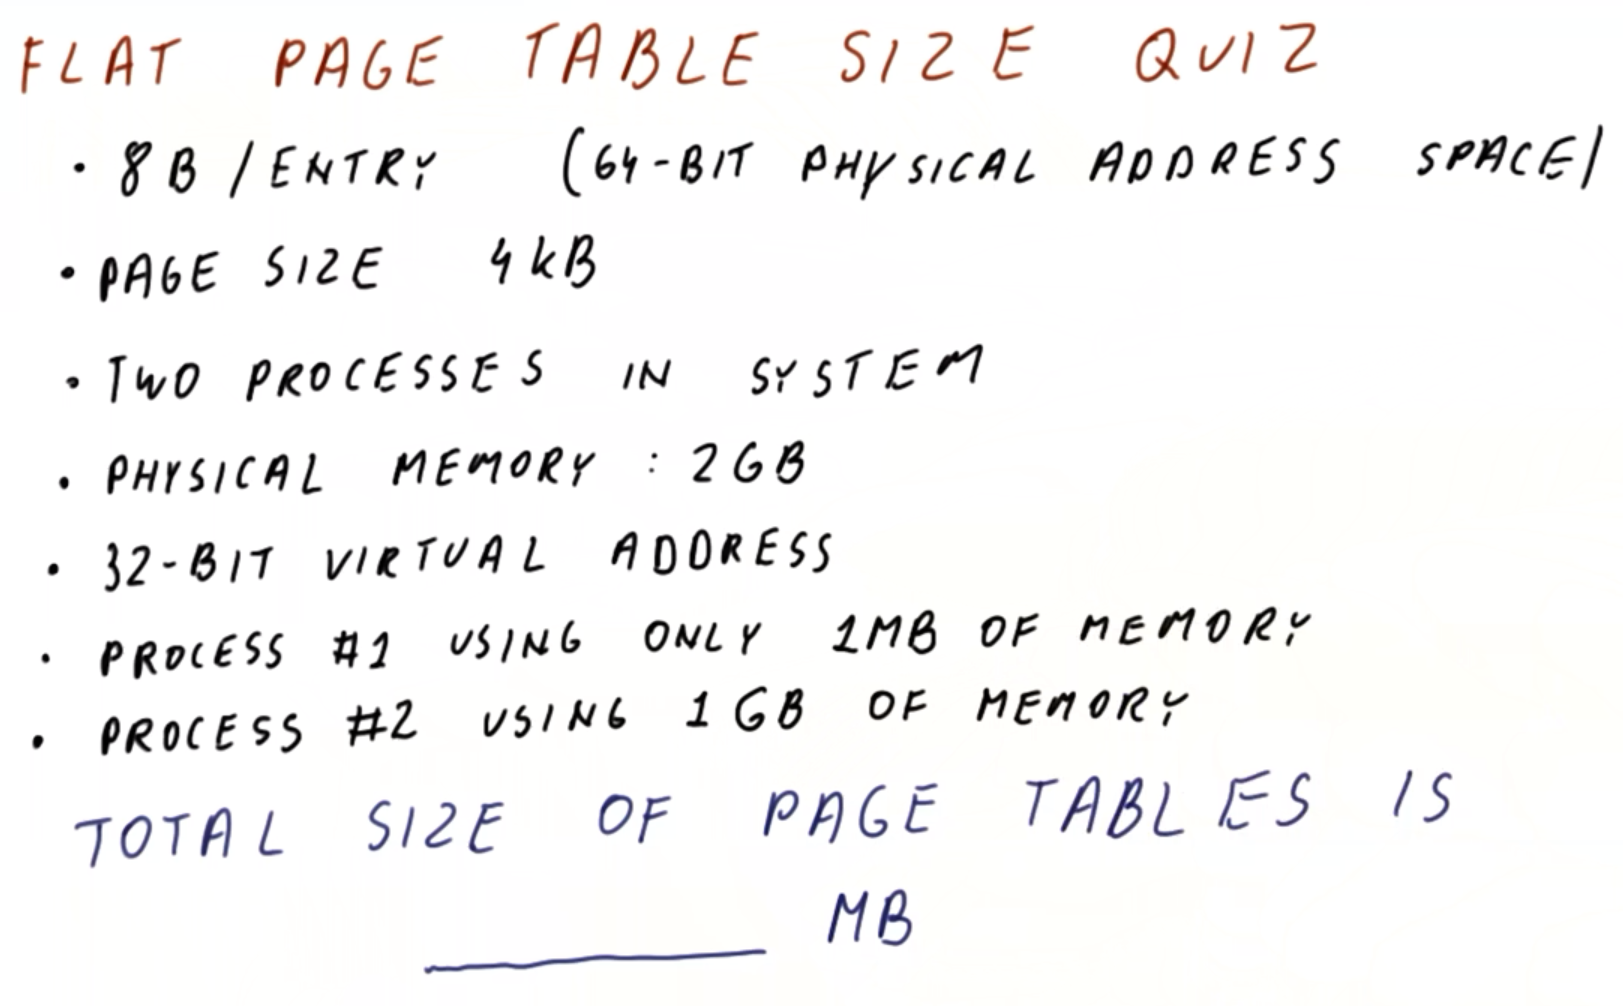 FLAT PAGE TABLE SIZE QUIZ
• 8B/ENTRY (64-BIT PHYSICAL ADDRESS SPACE)
• PAGE SIZE 4kB
• TWO PROCESSES IN SYSTEM
• PHYSICAL MEMORY : 2GB
• 32-BIT VIRTUAL ADDRESS
• PROCESS #1 USING ONLY 1MB OF MEMORY
• PROCESS #2 USING 1GB OF MEMORY
TOTAL SIZE OF PAGE TABLES IS
______ MB